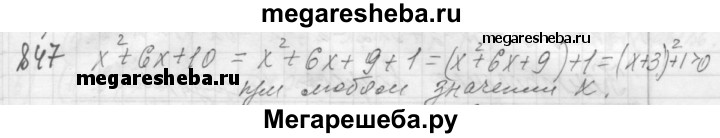 megaresheba.ru
847 x²+6x+10 = x²+6x+9+1=(x²+6x+9)+1=(x+3)²+1>0
при любом значении x.
megaresheba.ru
megaresheba.ru
Мегарешеба.ру